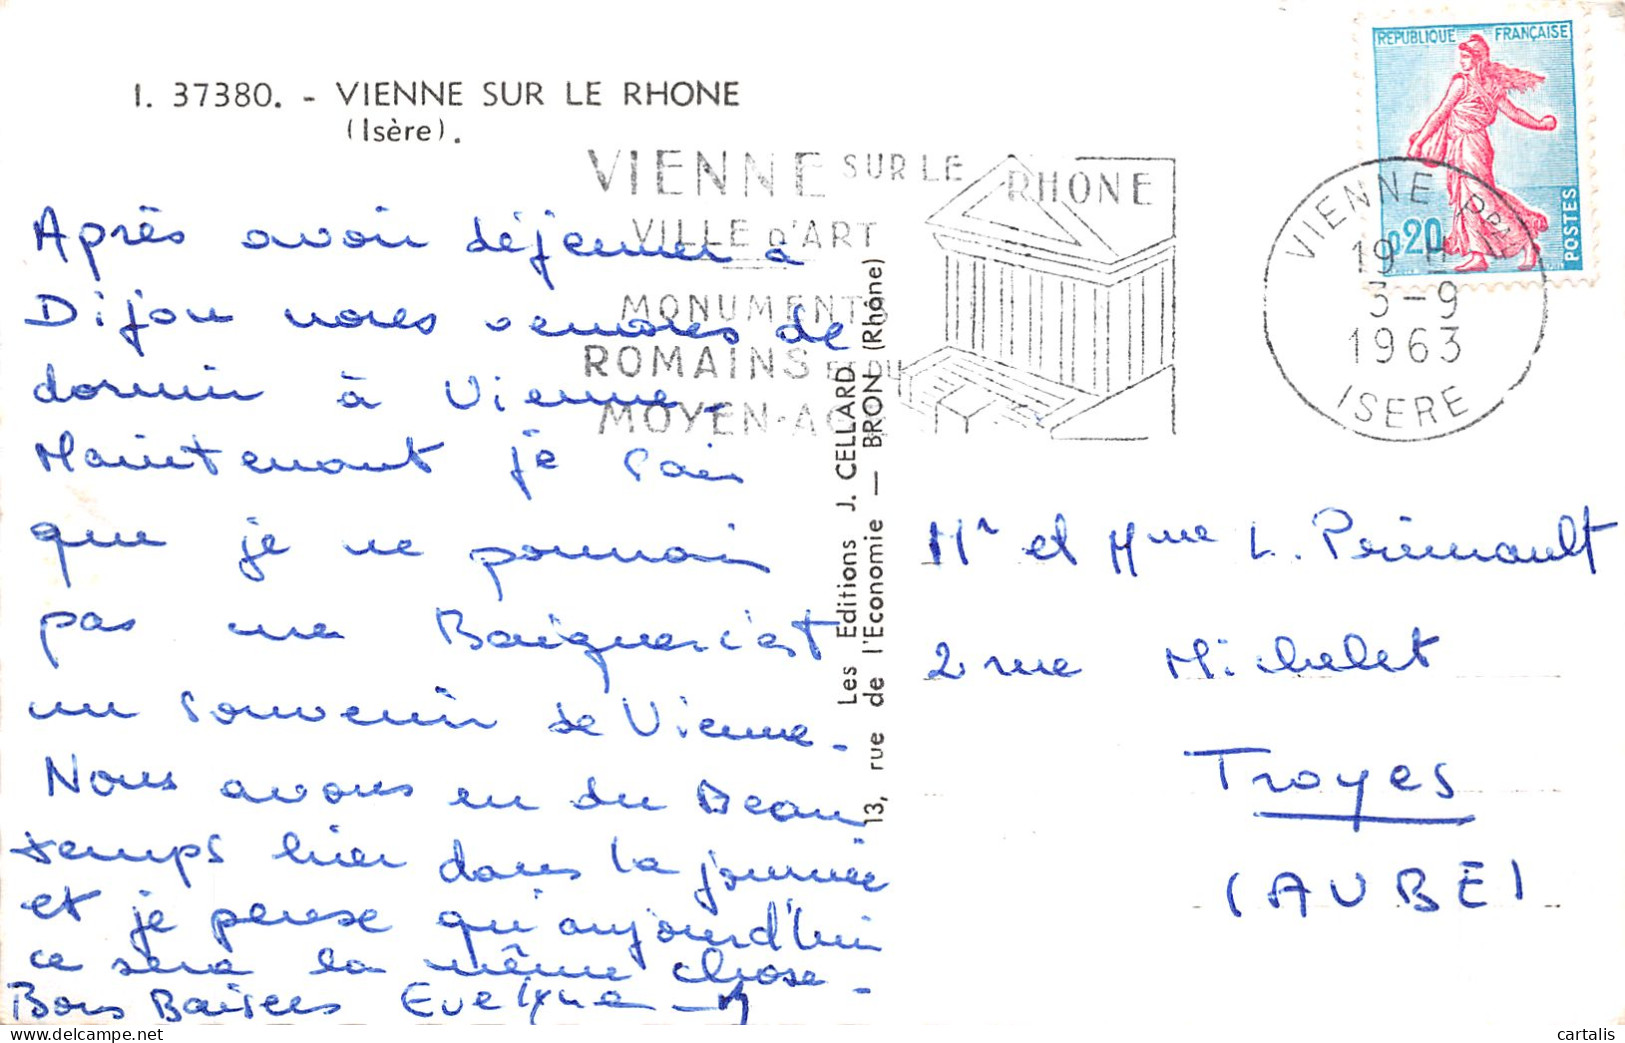 I. 37380. - VIENNE SUR LE RHONE
(Isère).
VIENNE SUR LE RHONE
VILLE D'ART
MONUMENTS
ROMAINS ET DU
MOYEN-AGE
REPUBLIQUE FRANÇAISE
0,20
POSTES
VIENNE PPAL
19 H
3-9
1963
ISERE
Après avoir déjeuner à
Dijon nous venons de
dormir à Vienne.
Maintenant je sais
que je ne pourrais
pas me Baigner c'est
un souvenir de Vienne.
Nous avons eu du Beau
temps hier dans la journée
et je pense qu'aujourd'hui
ce sera la même chose.
Bons Baisers Evelyne
Les Editions J. CELLARD
13, rue de l'Economie — BRON (Rhône)
Mr et Mme L. Perinault
2 rue Michelet
Troyes
(AUBE)
cartalis